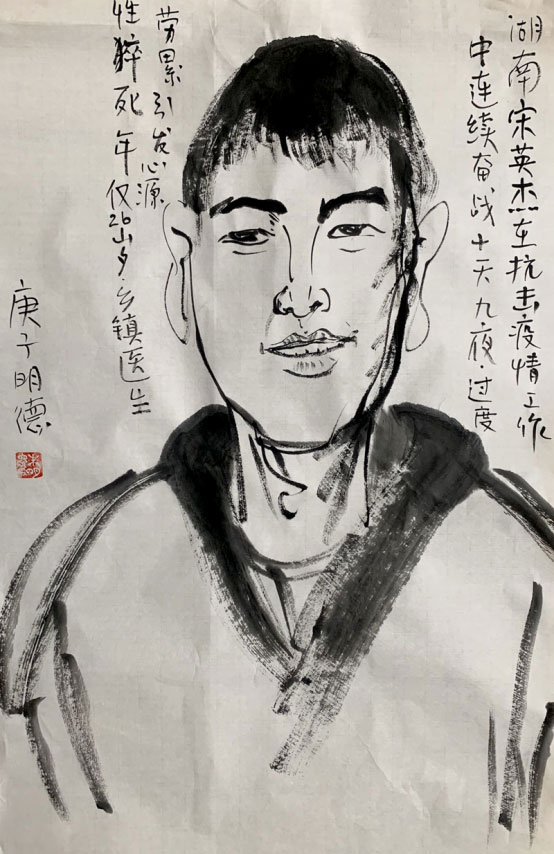 湖南宋英杰在抗击疫情工作
中连续奋战十天九夜·过度
劳累引发心源
性猝死年仅26岁·乡镇医生
庚子明德